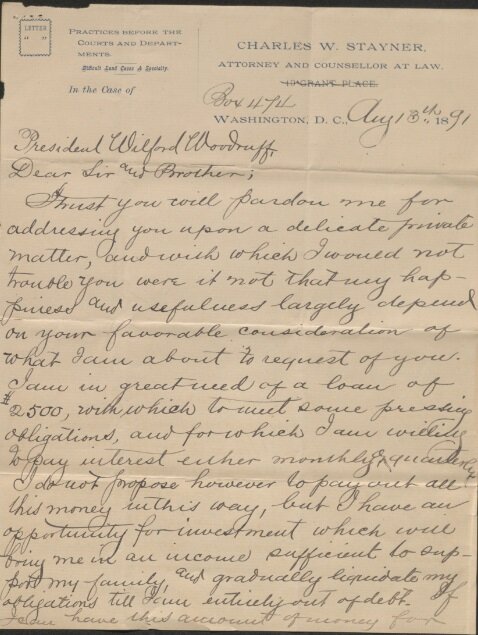 LETTER
" "
PRACTICES BEFORE THE
COURTS AND DEPART-
MENTS.
Difficult Land Cases A Specialty.
In the Case of
CHARLES W. STAYNER,
ATTORNEY AND COUNSELLOR AT LAW,
19 GRANT PLACE.
Box 474
WASHINGTON, D. C., Aug 13th, 1891
President Wilford Woodruff,
Dear Sir and Brother;
I trust you will pardon me for
addressing you upon a delicate private
matter, and with which I would not
trouble you were it not that my hap-
piness and usefulness largely depend
on your favorable consideration of
what I am about to request of you.
I am in great need of a loan of
$2500, with which to meet some pressing
obligations, and for which I am willing
to pay interest either monthly quarterly
I do not propose however to pay out all
this money in this way, but I have an
opportunity for investment which will
bring me in an income sufficient to sup-
port my family, and gradually liquidate my
obligations till I am entirely out of debt. If
I can have this amount of money for